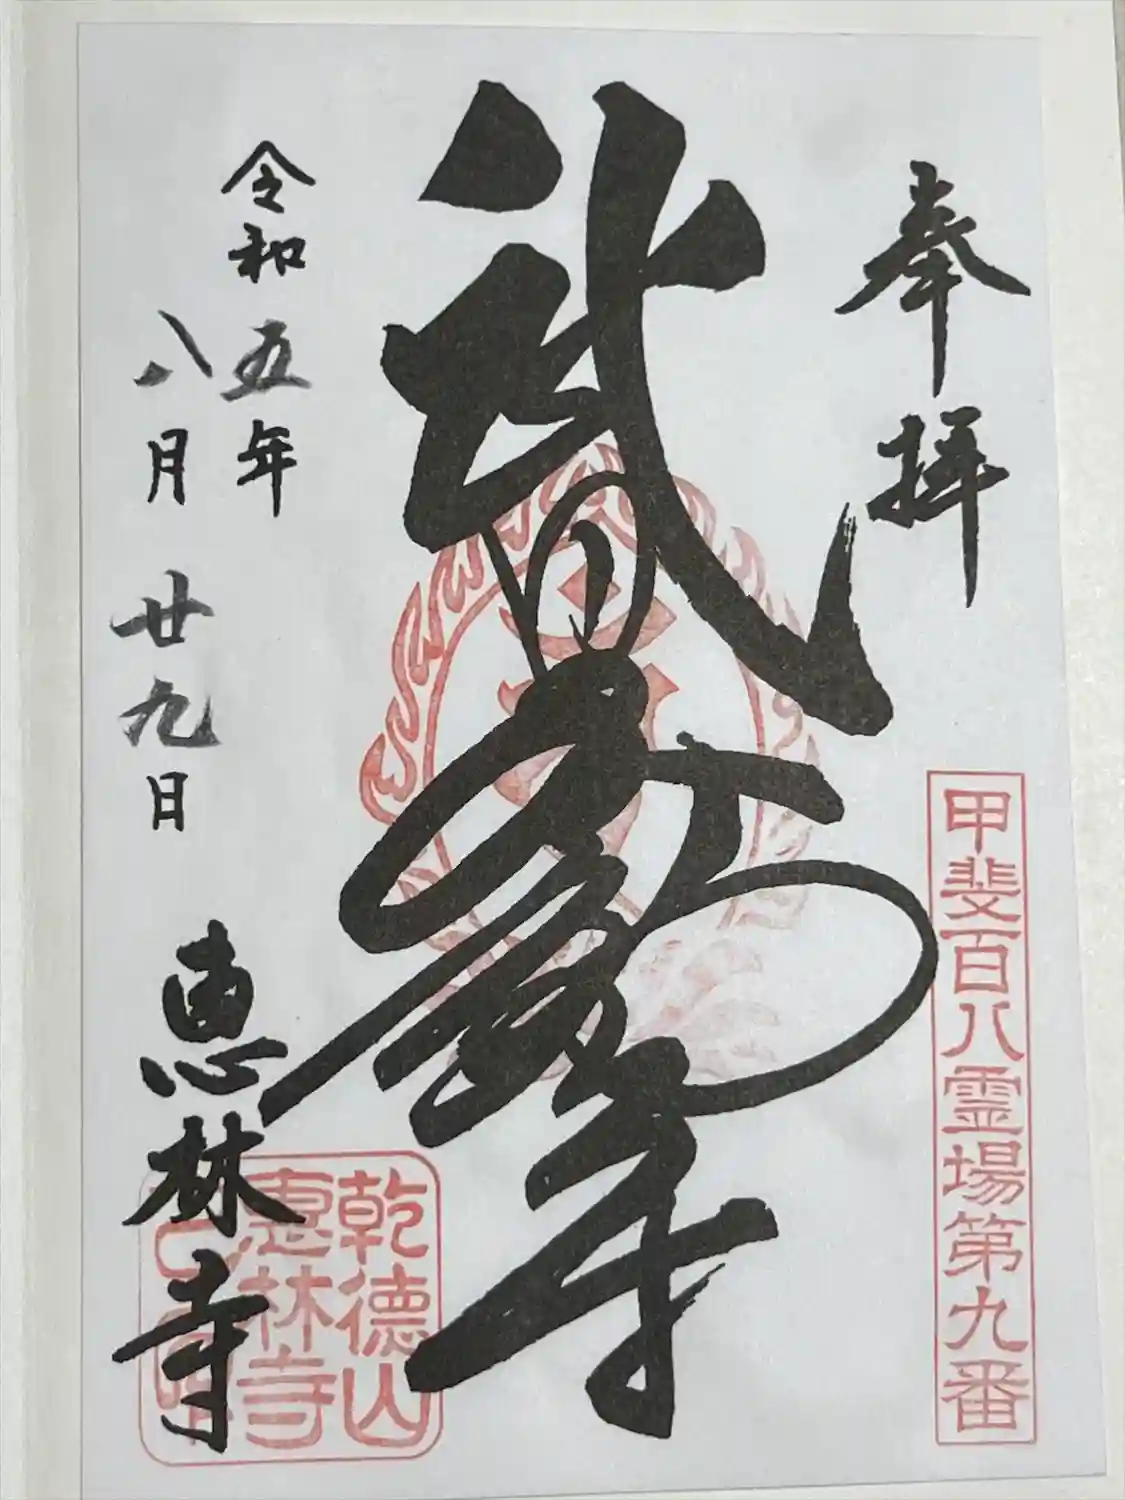 奉拝
甲斐百八霊場第九番
武田不動尊
令和五年
八月廿九日
恵林寺
乾徳山
恵林寺